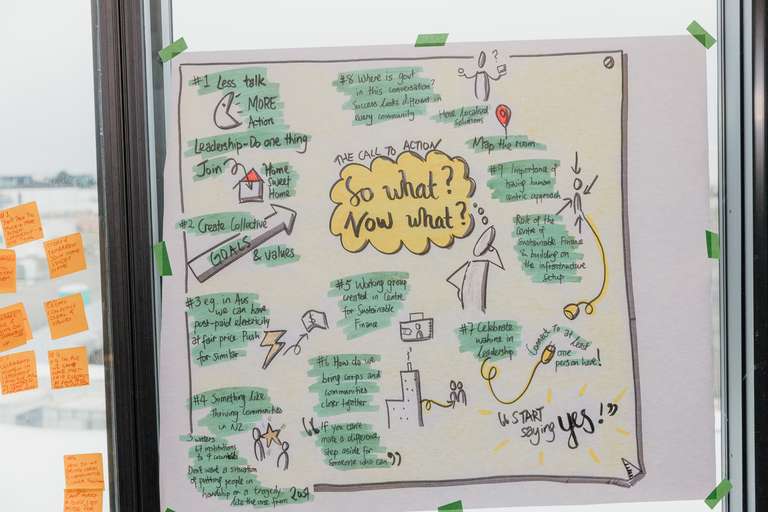 #1 Less talk
MORE
Action
Leadership - Do one thing
Join
Home
Sweet
Home
#2 Create Collective
GOALS & values
#3 e.g. in Aus
we can have
post-paid electricity
at fair price. Push
for similar
#4 Something like
Thriving Communities
in NZ
3 waters
67 institutions
to 4 councils
Don't want a situation
of putting people in
hardship or a tragedy
like the one from 2018
#8 Where is govt
in this conversation?
Success looks different in
every community
Have localised
solutions
Map the room
THE CALL TO ACTION
So what?
Now what?
#5 Working group
created in Centre
for Sustainable
Finance
#6 How do we
bring corps and
communities
closer together
"If you can't
make a difference,
step aside for
someone who can"
#9 Importance of
having human
centric approach
Part of the
Centre of
Sustainable Finance
& building on
the infrastructure
setup
#7 Celebrate
wahine in
leadership
Connect to at least
one
person here!
"START
saying yes!"